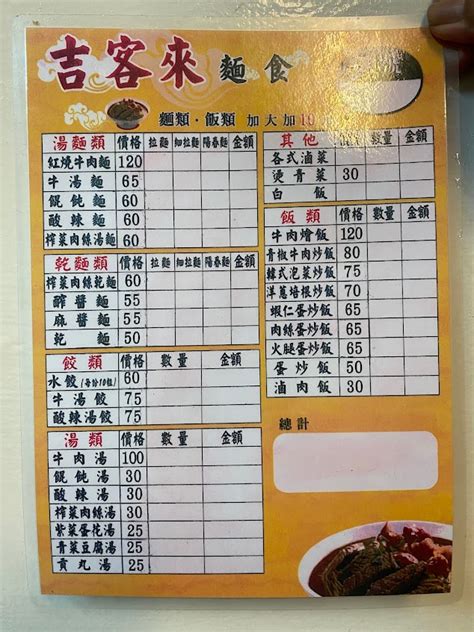 吉客來 麵食
麵類・飯類 加大加10
湯麵類 價格 拉麵 細拉麵 陽春麵 金額
紅燒牛肉麵 120
牛湯麵 65
餛飩麵 60
酸辣麵 60
榨菜肉絲湯麵 60
乾麵類 價格 拉麵 細拉麵 陽春麵 金額
榨菜肉絲乾麵 60
醡醬麵 55
麻醬麵 55
乾麵 50
餃類 價格 數量 金額
水餃(每份10粒) 60
牛湯餃 75
酸辣湯餃 75
湯類 價格 數量 金額
牛肉湯 100
餛飩湯 30
酸辣湯 30
榨菜肉絲湯 30
紫菜蛋花湯 25
青菜豆腐湯 25
貢丸湯 25
其他 價格 數量 金額
各式滷菜
燙青菜 30
白飯
飯類 價格 數量 金額
牛肉燴飯 120
青椒牛肉炒飯 80
韓式泡菜炒飯 75
洋蔥培根炒飯 70
蝦仁蛋炒飯 65
肉絲蛋炒飯 65
火腿蛋炒飯 65
蛋炒飯 50
滷肉飯 30
總計